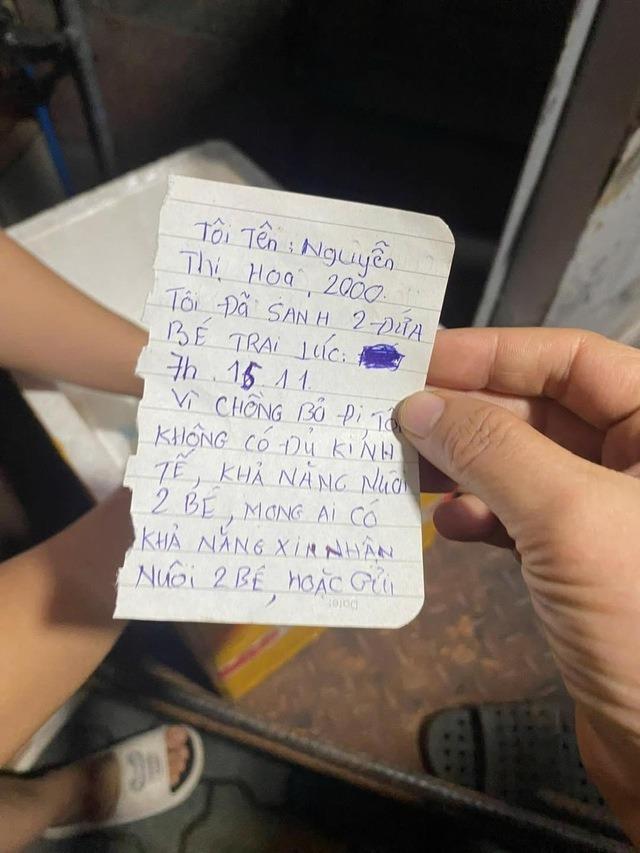 Tôi Tên : Nguyễn
Thị Hoa, 2000.
Tôi Đã SANH 2 ĐỨA
BÉ TRAI LÚC:
7h. 15 11.
Vì CHỒNG BỎ Đi, TÔi
KHÔNG CÓ ĐỦ KiNH
TẾ, KHẢ NĂNG NUÔi
2 BÉ, MONG Ai CÓ
KHẢ NĂNG Xin NHẬN
NUÔi 2 BÉ, HOẶC GỬi
Date: